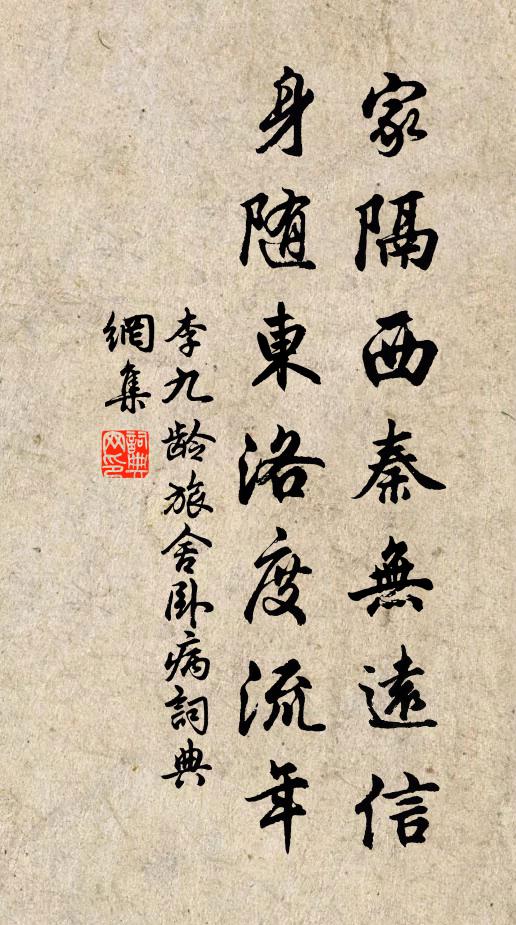 家隔西秦無遠信
身随東洛度流年
李九龄旅舍卧病詞典
網集
詞典
网印